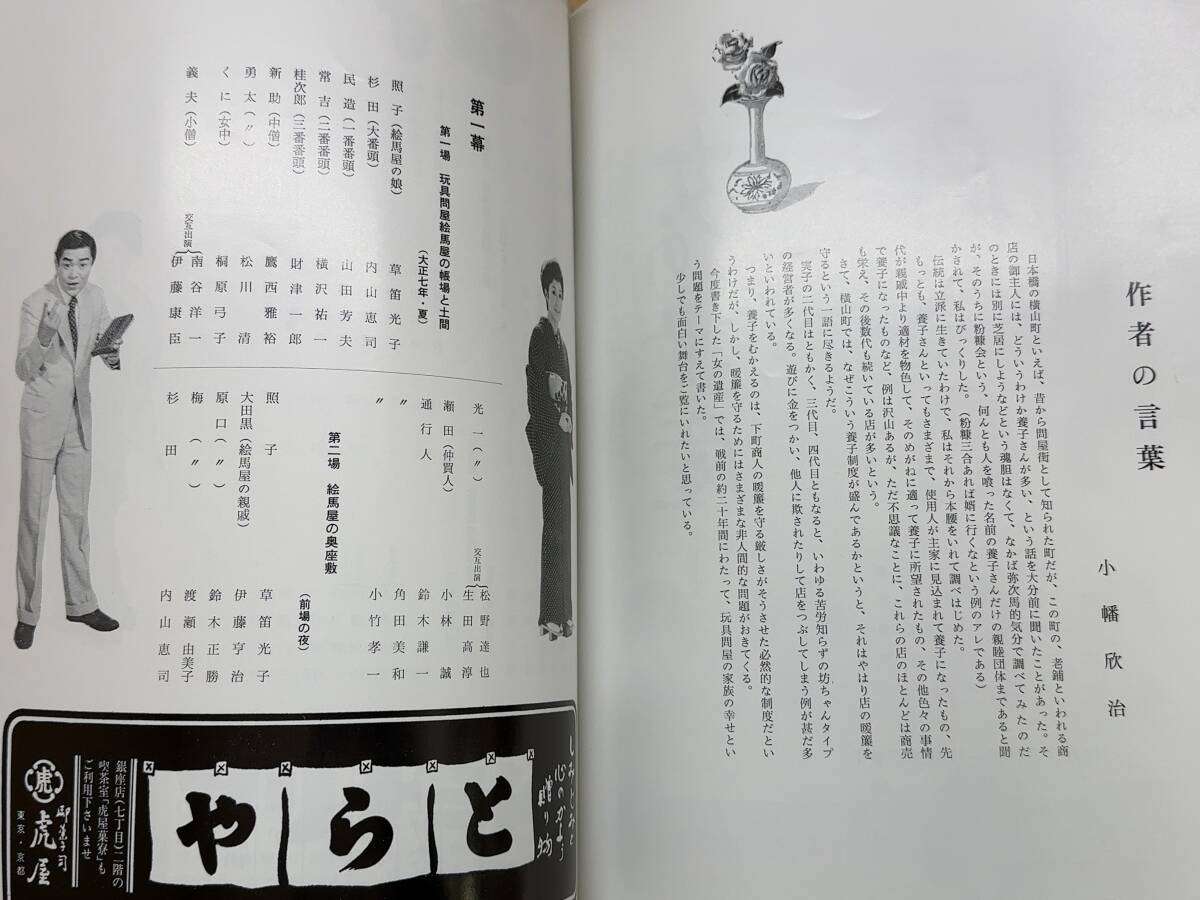 作者の言葉
小幡欣治
日本橋の横山町といえば、昔から問屋街として知られた町だが、この町の、老鋪といわれる商
店の御主人には、どういうわけか養子さんが多い、という話を大分前に聞いたことがあった。そ
のときには別に芝居にしようなどという魂胆はなくて、なかば弥次馬的気分で調べてみたのだ
が、そのうちに粉糠会という、何んとも人を喰った名前の養子さんだけの親睦団体まであると聞
かされて、私はびっくりした。（粉糠三合あれば婿に行くなという例のアレである）
もっとも、養子さんといってもさまざまで、使用人が主家に見込まれて養子になったもの、先
代が親戚中より適材を物色して、そのめがねに適って養子に所望されたもの、その他色々の事情
で養子になったものなど、例は沢山あるが、ただ不思議なことに、これらの店のほとんどは商売
も栄え、その後数代も続いている店が多いという。
伝統は立派に生きていたわけで、私はそれから本腰をいれて調べはじめた。
さて、横山町では、なぜこういう養子制度が盛んであるかというと、それはやはり店の暖簾を
守るという一語に尽きるようだ。
実子の二代目はともかく、三代目、四代目ともなると、いわゆる苦労知らずの坊ちゃんタイプ
の経営者が多くなる。遊びに金をつかい、他人に欺されたりして店をつぶしてしまう例が甚だ多
いといわれている。
つまり、養子をむかえるのは、下町商人の暖簾を守る厳しさがそうさせた必然的な制度だとい
うわけだが、しかし、暖簾を守るためにはさまざまな非人間的な問題がおきてくる。
今度書き下した「女の遺産」では、戦前の約二十年間にわたって、玩具問屋の家族の幸せとい
う問題をテーマにすえて書いた。
少しでも面白い舞台をご覧にいれたいと思っている。
第一幕
第一場 玩具問屋絵馬屋の帳場と土間
（大正七年・夏）
照子（絵馬屋の娘） 草笛光子
杉田（大番頭） 内山恵司
民造（一番番頭） 山田芳夫
常吉（二番番頭） 横沢祐一
桂次郎（三番番頭） 財津一郎
新助（中僧） 鷹西雅裕
勇太（〃） 松川清
くに（女中） 桐原弓子
義夫（小僧） 交互出演 南谷洋一
伊藤康臣
光一（〃） 交互出演 松野達也
生田高淳
瀬田（仲買人） 小林誠
通行人 鈴木謙一
〃 角田美和
〃 小竹孝一
第二場 絵馬屋の奥座敷
（前場の夜）
照子 草笛光子
大田黒（絵馬屋の親戚） 伊藤亨治
原口（〃） 鈴木正勝
梅（〃） 渡瀬由美子
杉田 内山恵司
心のかよう
贈り物
とらや
銀座店（七丁目）二階の
喫茶室「虎屋菓寮」も
ご利用下さいませ
虎
御菓子司
虎屋
東京・京都